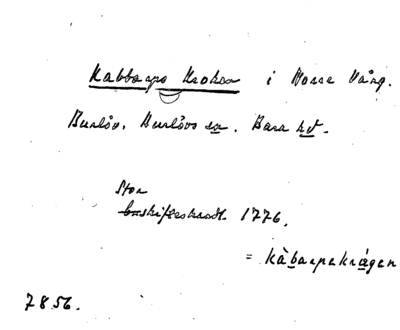 Kabbarps Kroken i Norre Vång.
Burlöv. Burlövs sn. Bara hd.
Stor
skifteskart. 1776.
= kàbarpskrågen
7856.